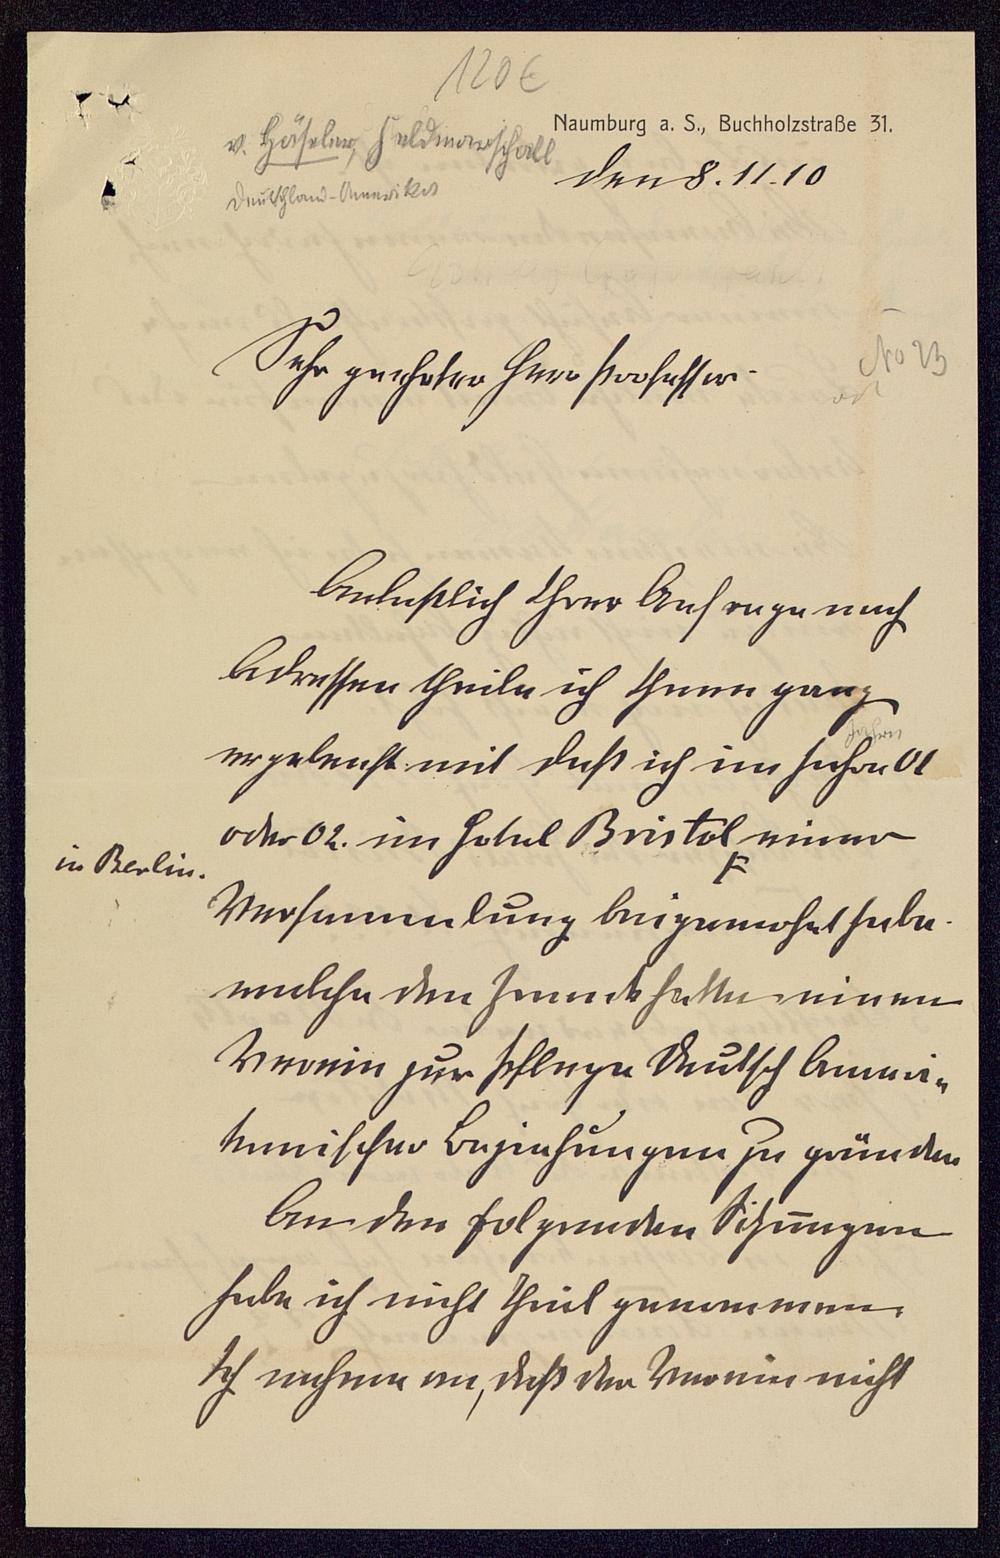 120 €
Naumburg a. S., Buchholzstraße 31.
v. Häseler, Feldmarschall
Deutschland-Amerika
den 8.11.10
No 23
Sehr geehrter Herr Professor.
Anläßlich Ihrer Anfrage nach
Adressen theile ich Ihnen ganz
Jahre
ergebenst mit daß ich im Jahre 01
oder 02. im Hotel Bristol einer
in Berlin.
Versammlung beigewohnt habe.
welche den Zweck hatte einen
Verein zur Pflege Deutsch Ameri-
kanischer Beziehungen zu gründen
An den folgenden Sitzungen
habe ich nicht Theil genommen.
Ich nehme an, daß der Verein nicht